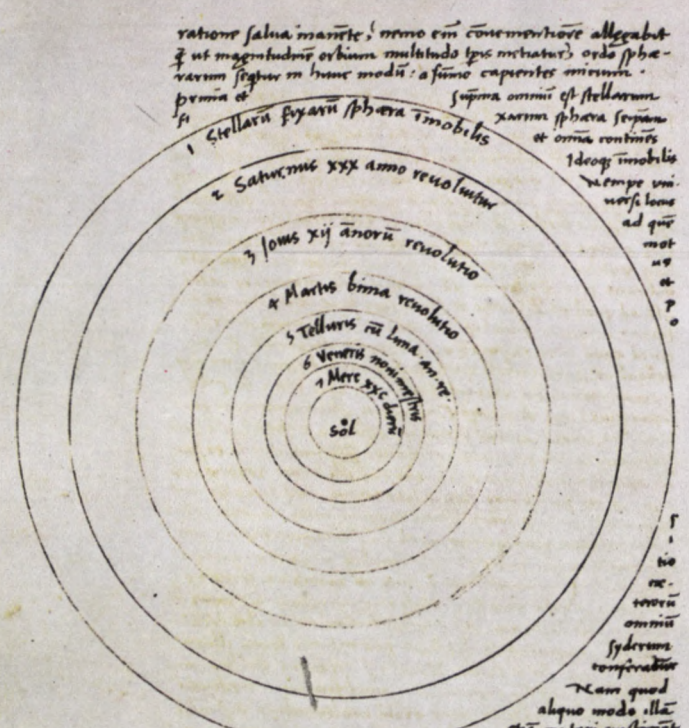 ratione salua manēte, nemo em̄ cōuenientiorē allegabit
q̄ ut magnitudinē orbium multitudo tp̄is metiatur, ordo sphæ-
rarum seqtur in hunc modū: a sūmo capientes initium.
prima et suprema omniū est stellarum
fi xarum sphæra seipsam
et omnia continēs
Ideoqꝫ īmobilis
Nempe vni-
uersi locus
ad quē
mot
us
et
p
o
1 Stellarū fixarū sphæra īmobilis
2 Saturnus xxx anno reuoluitur
3 Jouis xij annorū reuolutio
4 Martis bima reuolutio
5 Telluris cū luna an. re.
6 Veneris nonimestris
7 Merc xxc dierū
Sol
s
i
tio
ex-
terorū
omniū
syderum
conferatur
Nam quod
aliquo modo illā